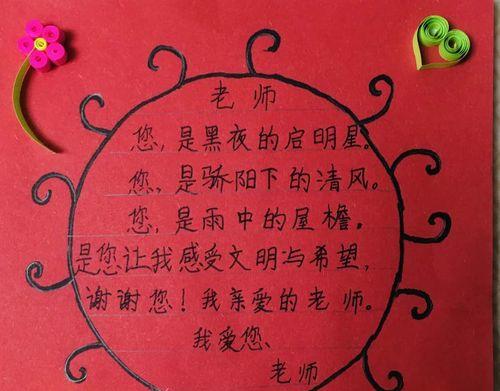 老师
您，是黑夜的启明星。
您，是骄阳下的清风。
您，是雨中的屋檐。
是您让我感受文明与希望，
谢谢您！我亲爱的老师。
我爱您、
老师